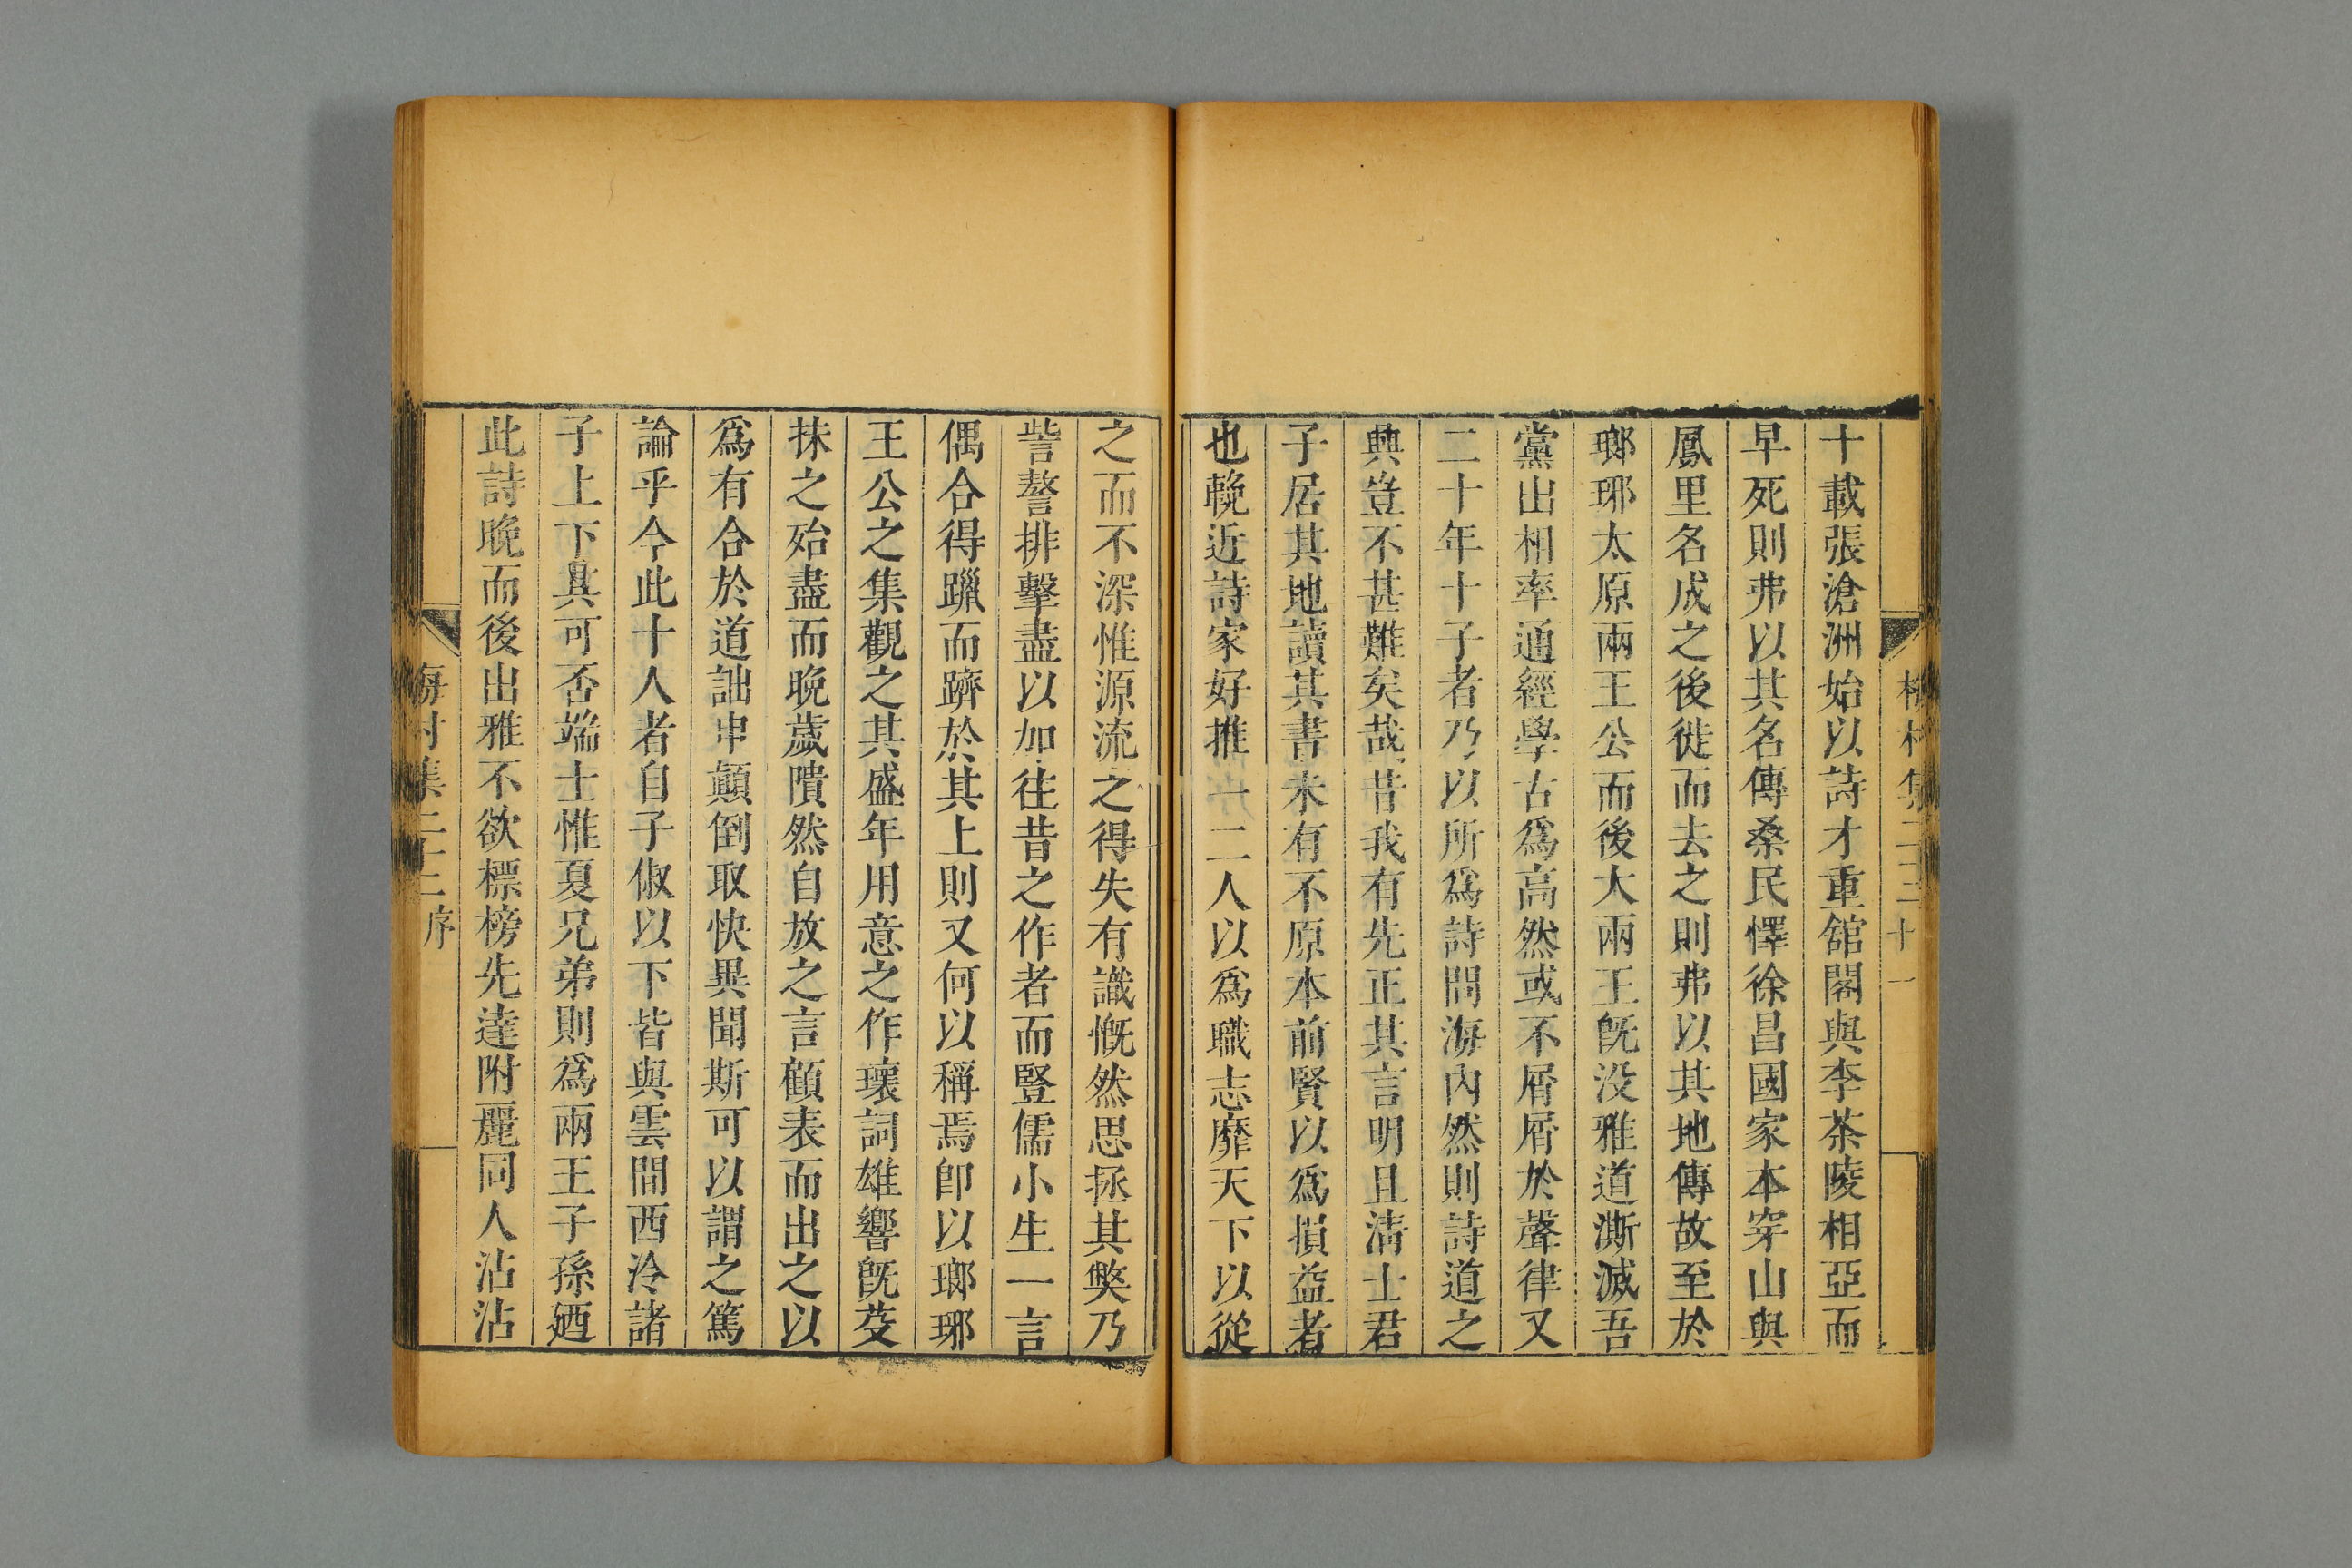 十載張滄洲始以詩才重舘閣與李茶陵相亞而
早死則弗以其名傳桑民懌徐昌國家本穿山與
鳳里名成之後徙而去之則弗以其地傳故至於
瑯琊太原兩王公而後大兩王旣没雅道澌滅吾
黨出相率通經學古爲高然或不屑屑於聲律又
二十年十子者乃以所爲詩問海内然則詩道之
興豈不甚難矣哉昔我有先正其言明且清士君
子居其地讀其書未有不原本前賢以爲損益者
也輓近詩家好推一二人以爲職志靡天下以從
之而不深惟源流之得失有識慨然思拯其獘乃
訾謷排擊盡以加往昔之作者而豎儒小生一言
偶合得躐而躋於其上則又何以稱焉卽以瑯琊
王公之集觀之其盛年用意之作瓌詞雄響旣芟
抹之殆盡而晚歲隤然自放之言顧表而出之以
爲有合於道詘申顛倒取快異聞斯可以謂之篤
論乎今此十人者自子俶以下皆與雲間西泠諸
子上下其可否端士惟夏兄弟則爲兩王子孫廼
此詩晚而後出雅不欲標榜先達附麗同人沾沾
梅村集二十二序